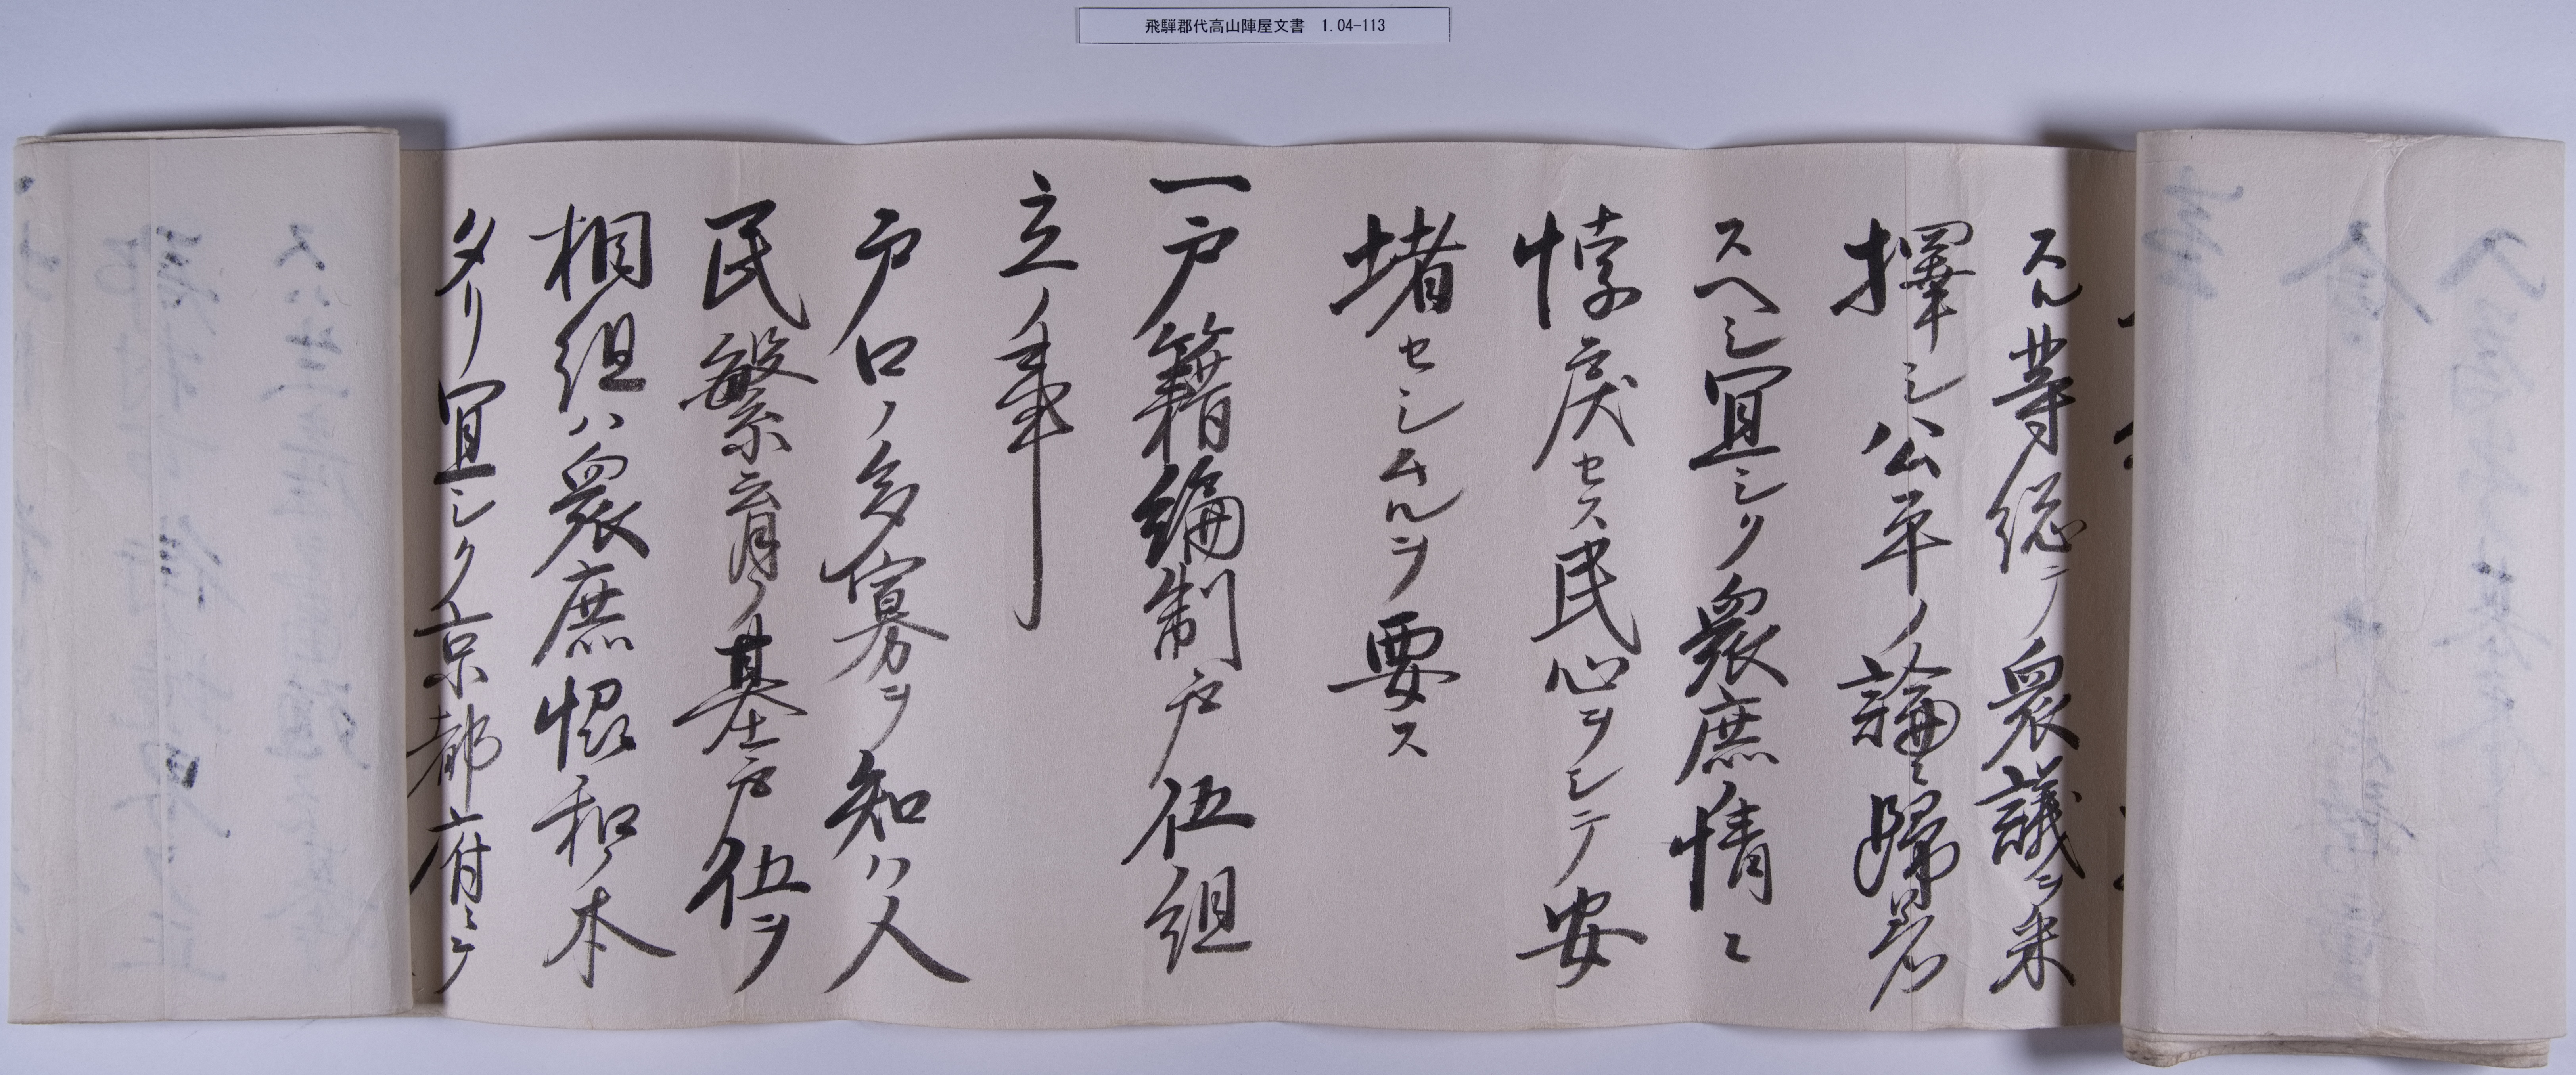 飛騨郡代高山陣屋文書 1.04-113
スル等総テ衆議ヲ采
択シ公平ノ論ニ帰着
スヘシ宜シク衆庶ノ情ニ
悖戻セス民心ヲシテ安
堵セシムルヲ要ス
一戸籍編制戸伍組
立ノ事
戸口ノ多寡ヲ知ハ人
民繁育ノ基戸伍ヲ
相組ハ衆庶協和ノ本
タリ宜シク京都府ニテ